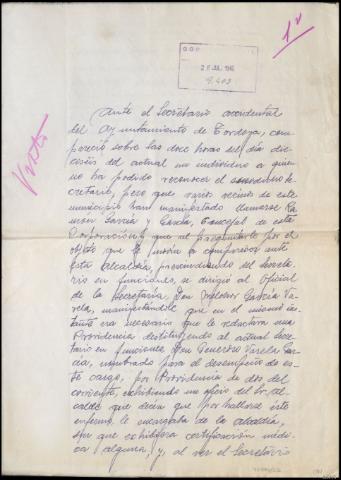 1ª
2 E JUL 1946
9.403
Visto
Ante el Secretario accidental
del Ayuntamiento de Tordoya, com-
pareció sobre las doce horas del día die-
ciséis del actual un individuo a quien
no ha podido reconocer el Se-
cretario, pero que varios vecinos de este
municipio han manifestado llamarse Ra-
món García y García, Concejal de esta
Corporación, que al preguntarle por el
objeto que le a comparecer ante
esta Alcaldía, prescindiendo del Secreta-
rio en funciones, se dirigió al Oficial
de la Secretaría, Don Melchor García Va-
rela, manifestándole que en el mismo ins-
tante era necesario que le redactara una
Providencia destituyendo al actual Secre-
tario en funciones Don Varela Gar-
cía, nombrado para el desempeño de es-
te cargo, por Providencia de dos del
corriente, exhibiendo un oficio del Sr. Al-
calde que decía que por hallarse éste
enfermo le encargaba de la alcaldía,
sin que exhibiera certificación médi-
ca alguna, y, al ver el Secretario